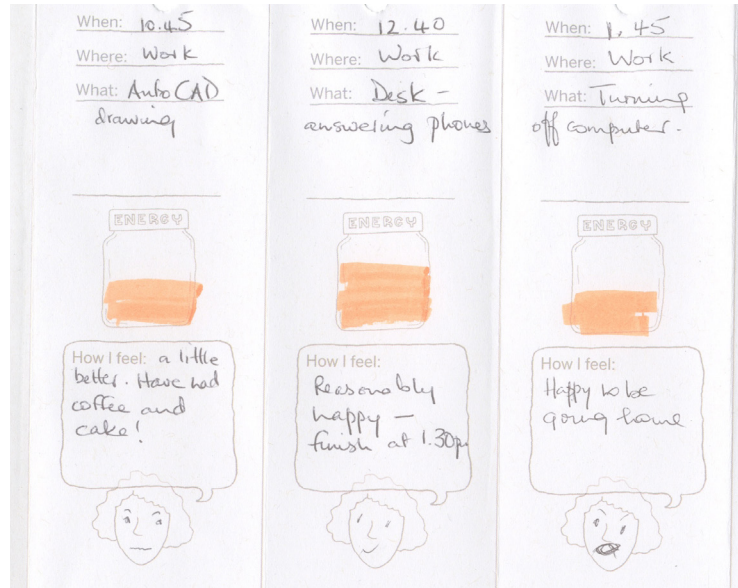 When: 10.45
Where: Work
What: AutoCAD
drawing
ENERGY
How I feel: a little
better. Have had
coffee and
cake!
When: 12.40
Where: Work
What: Desk -
answering phones
ENERGY
How I feel:
Reasonably
happy —
finish at 1.30pm
When: 1.45
Where: Work
What: Turning
off computer.
ENERGY
How I feel:
Happy to be
going home